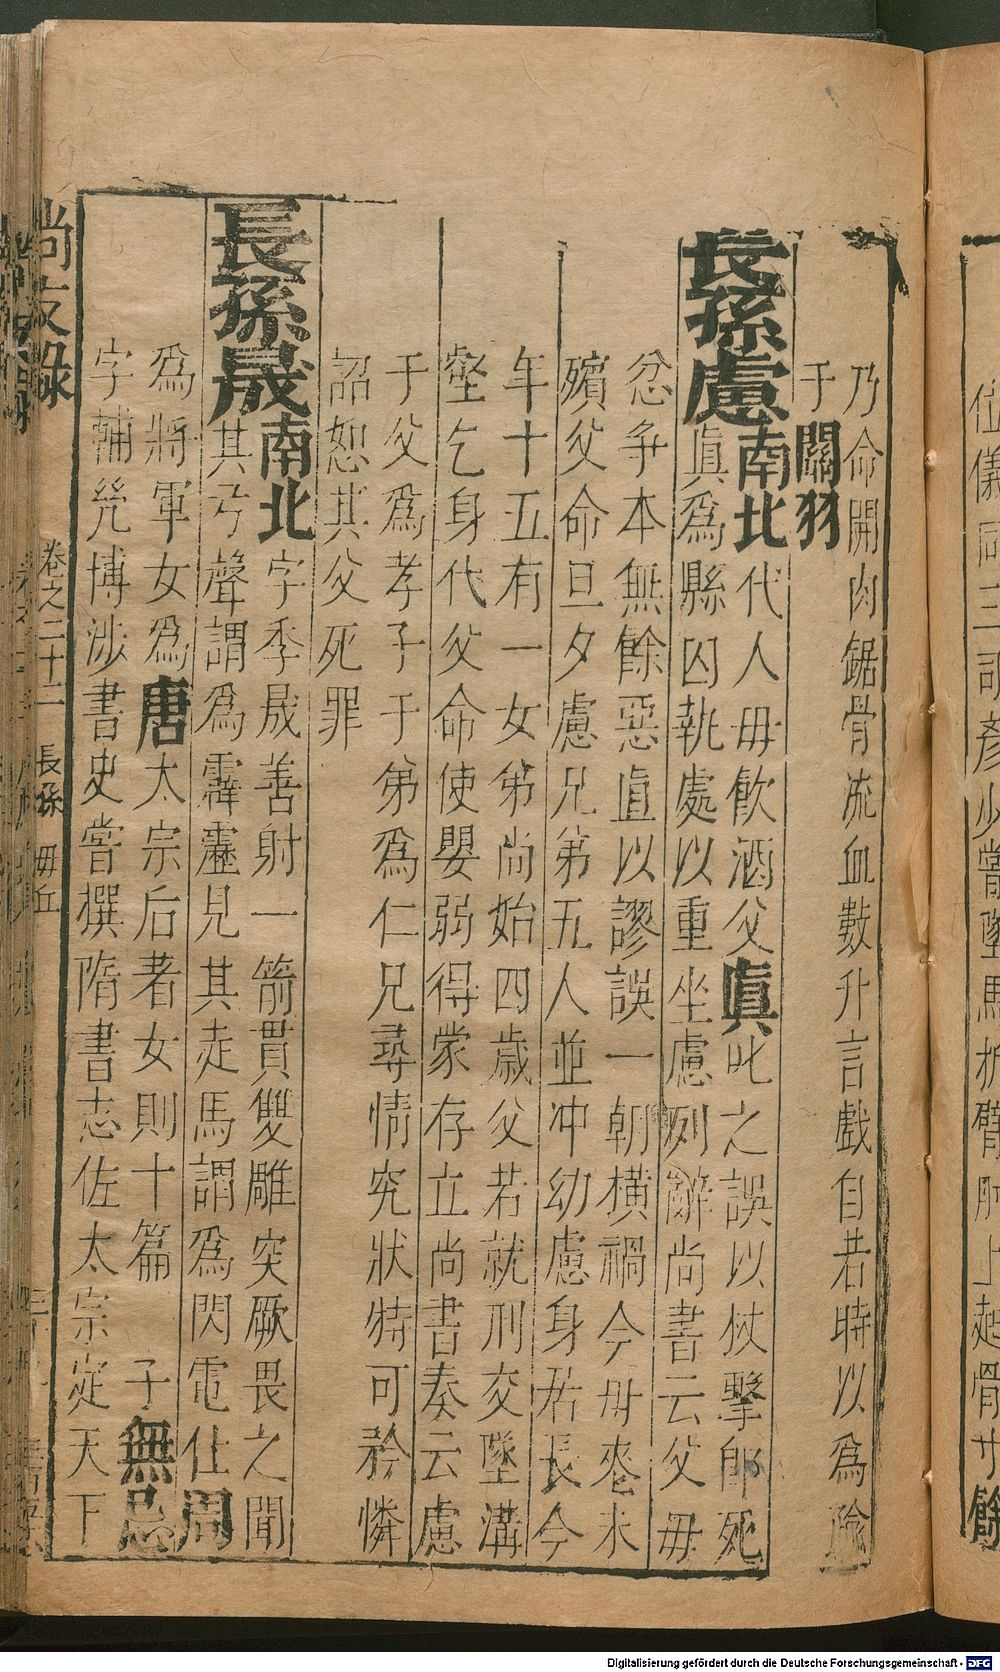 位儀同三司彥少嘗墜馬折臂肘上起骨寸餘
乃命開肉鋸骨流血數升言戲自若時以爲踰
于關羽
長孫慮南北代人毋飮酒父眞叱之誤以杖擊卽死
眞爲縣囚執處以重坐慮列辭尚書云父毋
忿争本無餘惡直以謬誤一朝橫禍今毋喪未
殯父命旦夕慮兄弟五人並冲幼慮身居長今
年十五有一女弟尚始四歲父若就刑交墜溝
壑乞身代父命使嬰弱得蒙存立尚書奏云慮
于父爲孝子于弟爲仁兄尋情究狀特可矜憐
詔恕其父死罪
長孫晟南北字季晟善射一箭貫雙雕突厥畏之聞
其弓聲謂爲霹靂見其走馬謂爲閃電仕周
爲將軍女爲唐太宗后著女則十篇 子無忌
字輔兂博涉書史嘗撰隋書志佐太宗定天下
尚友錄 卷之二十二 長孫 毋丘
Digitalisierung gefördert durch die Deutsche Forschungsgemeinschaft - DFG